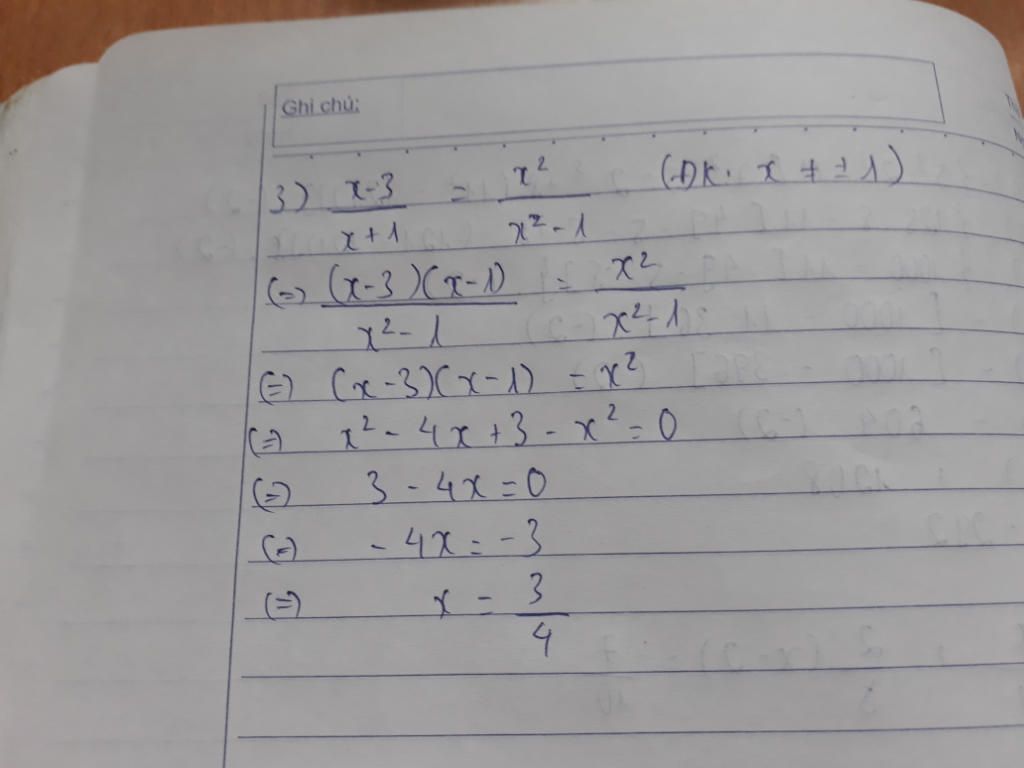 Ghi chú:
3) \frac{x-3}{x+1} = \frac{x^2}{x^2-1} (ĐK. x ≠ ±1)
(=) \frac{(x-3)(x-1)}{x^2-1} = \frac{x^2}{x^2-1}
(=) (x-3)(x-1) = x^2
(=) x^2 - 4x + 3 - x^2 = 0
(=) 3 - 4x = 0
(=) - 4x = - 3
(=) x = \frac{3}{4}